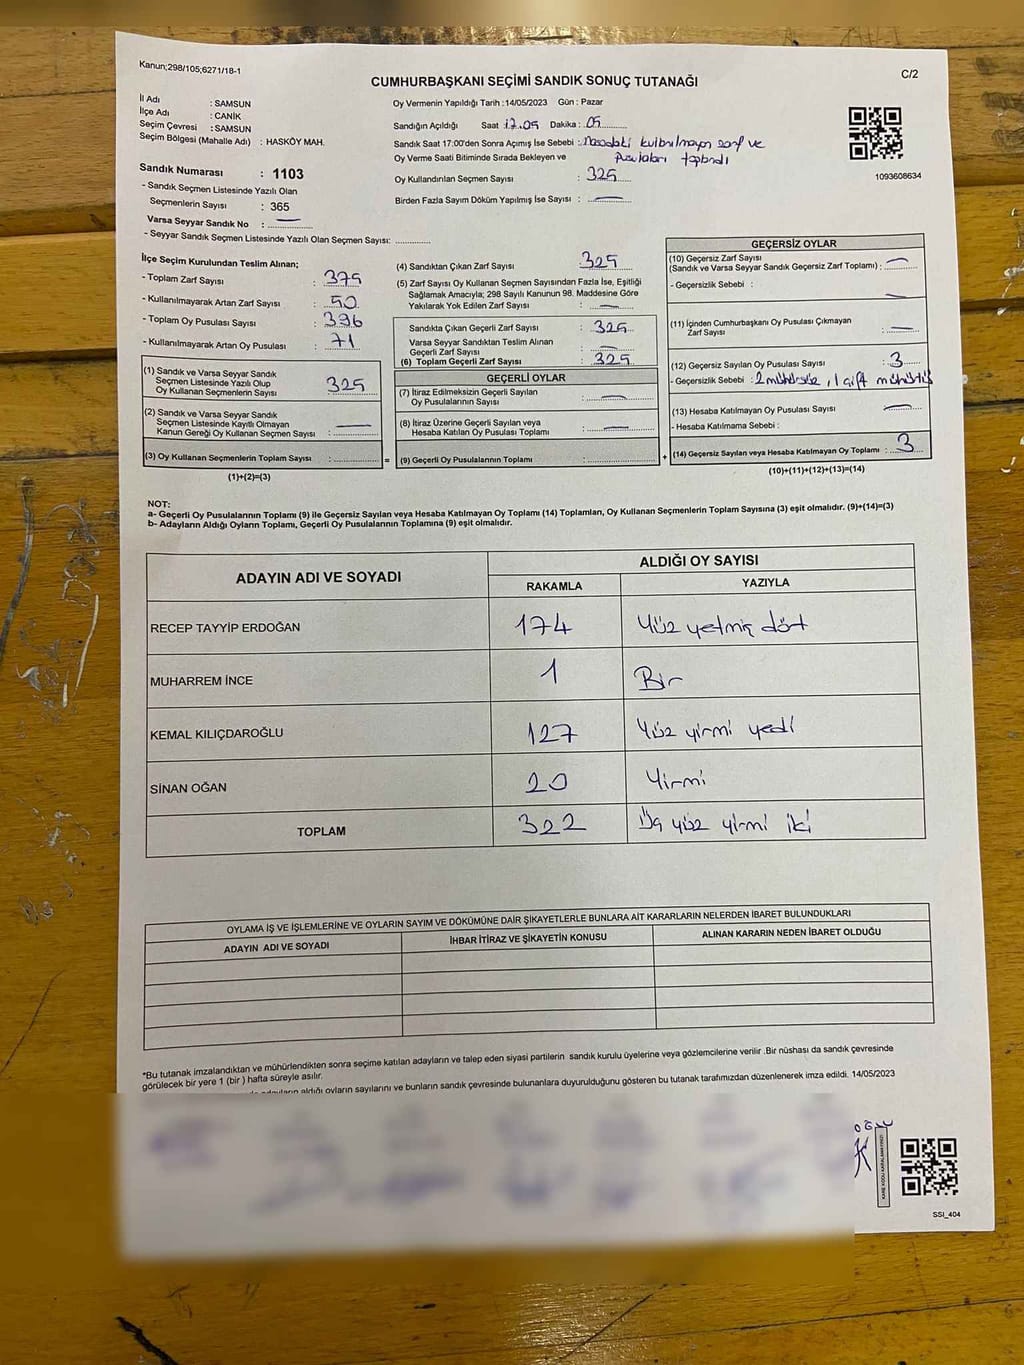 Kanun;298/105;6271/18-1
C/2
CUMHURBAŞKANI SEÇİMİ SANDIK SONUÇ TUTANAĞI
İl Adı : SAMSUN
İlçe Adı : CANİK
Seçim Çevresi : SAMSUN
Seçim Bölgesi (Mahalle Adı) : HASKÖY MAH.
Sandık Numarası : 1103
- Sandık Seçmen Listesinde Yazılı Olan
Seçmenlerin Sayısı : 365
Varsa Seyyar Sandık No : —
- Seyyar Sandık Seçmen Listesinde Yazılı Olan Seçmen Sayısı: ............
Oy Vermenin Yapıldığı Tarih :14/05/2023 Gün : Pazar
Sandığın Açıldığı Saat 17.05 Dakika : 05
Sandık Saat 17:00'den Sonra Açımış İse Sebebi : Masadaki kullanılmayan zarf ve
Oy Verme Saati Bitiminde Sırada Bekleyen ve pusulaları toplandı
Oy Kullandırılan Seçmen Sayısı : 325
Birden Fazla Sayım Döküm Yapılmış İse Sayısı : —
1093608634
İlçe Seçim Kurulundan Teslim Alınan;
- Toplam Zarf Sayısı : 375
- Kullanılmayarak Artan Zarf Sayısı : 50
- Toplam Oy Pusulası Sayısı : 396
- Kullanılmayarak Artan Oy Pusulası : 71
(1) Sandık ve Varsa Seyyar Sandık
Seçmen Listesinde Yazılı Olup
Oy Kullanan Seçmenlerin Sayısı : 325
(2) Sandık ve Varsa Seyyar Sandık
Seçmen Listesinde Kayıtlı Olmayan
Kanun Gereği Oy Kullanan Seçmen Sayısı : —
(3) Oy Kullanan Seçmenlerin Toplam Sayısı : ............ =
(1)+(2)=(3)
(4) Sandıktan Çıkan Zarf Sayısı : 325
(5) Zarf Sayısı Oy Kullanan Seçmen Sayısından Fazla İse, Eşitliği
Sağlamak Amacıyla; 298 Sayılı Kanunun 98. Maddesine Göre
Yakılarak Yok Edilen Zarf Sayısı : —
Sandıkta Çıkan Geçerli Zarf Sayısı : 325
Varsa Seyyar Sandıktan Teslim Alınan
Geçerli Zarf Sayısı : —
(6) Toplam Geçerli Zarf Sayısı : 325
GEÇERLİ OYLAR
(7) İtiraz Edilmeksizin Geçerli Sayılan
Oy Pusulalarının Sayısı : —
(8) İtiraz Üzerine Geçerli Sayılan veya
Hesaba Katılan Oy Pusulası Toplamı : —
(9) Geçerli Oy Pusulalarının Toplamı : ............ +
GEÇERSİZ OYLAR
(10) Geçersiz Zarf Sayısı
(Sandık ve Varsa Seyyar Sandık Geçersiz Zarf Toplamı) : —
- Geçersizlik Sebebi : —
(11) İçinden Cumhurbaşkanı Oy Pusulası Çıkmayan
Zarf Sayısı : —
(12) Geçersiz Sayılan Oy Pusulası Sayısı : 3
- Geçersizlik Sebebi : 2 mühürsüz, 1 çift mühürlü
(13) Hesaba Katılmayan Oy Pusulası Sayısı : —
- Hesaba Katılmama Sebebi :
(14) Geçersiz Sayılan veya Hesaba Katılmayan Oy Toplamı : 3
(10)+(11)+(12)+(13)=(14)
NOT:
a- Geçerli Oy Pusulalarının Toplamı (9) ile Geçersiz Sayılan veya Hesaba Katılmayan Oy Toplamı (14) Toplamları, Oy Kullanan Seçmenlerin Toplam Sayısına (3) eşit olmalıdır. (9)+(14)=(3)
b- Adayların Aldığı Oyların Toplamı, Geçerli Oy Pusulalarının Toplamına (9) eşit olmalıdır.
ADAYIN ADI VE SOYADI ALDIĞI OY SAYISI
RAKAMLA YAZIYLA
RECEP TAYYİP ERDOĞAN 174 Yüz yetmiş dört
MUHARREM İNCE 1 Bir
KEMAL KILIÇDAROĞLU 127 Yüz yirmi yedi
SİNAN OĞAN 20 Yirmi
TOPLAM 322 Üç yüz yirmi iki
OYLAMA İŞ VE İŞLEMLERİNE VE OYLARIN SAYIM VE DÖKÜMÜNE DAİR ŞİKAYETLERLE BUNLARA AİT KARARLARIN NELERDEN İBARET BULUNDUKLARI
ADAYIN ADI VE SOYADI İHBAR İTİRAZ VE ŞİKAYETİN KONUSU ALINAN KARARIN NEDEN İBARET OLDUĞU
*Bu tutanak imzalandıktan ve mühürlendikten sonra seçime katılan adayların ve talep eden siyasi partilerin sandık kurulu üyelerine veya gözlemcilerine verilir .Bir nüshası da sandık çevresinde
görülecek bir yere 1 (bir ) hafta süreyle asılır.
adayların aldığı oyların sayılarını ve bunların sandık çevresinde bulunanlara duyurulduğunu gösteren bu tutanak tarafımızdan düzenlenerek imza edildi. 14/05/2023
SSI_404